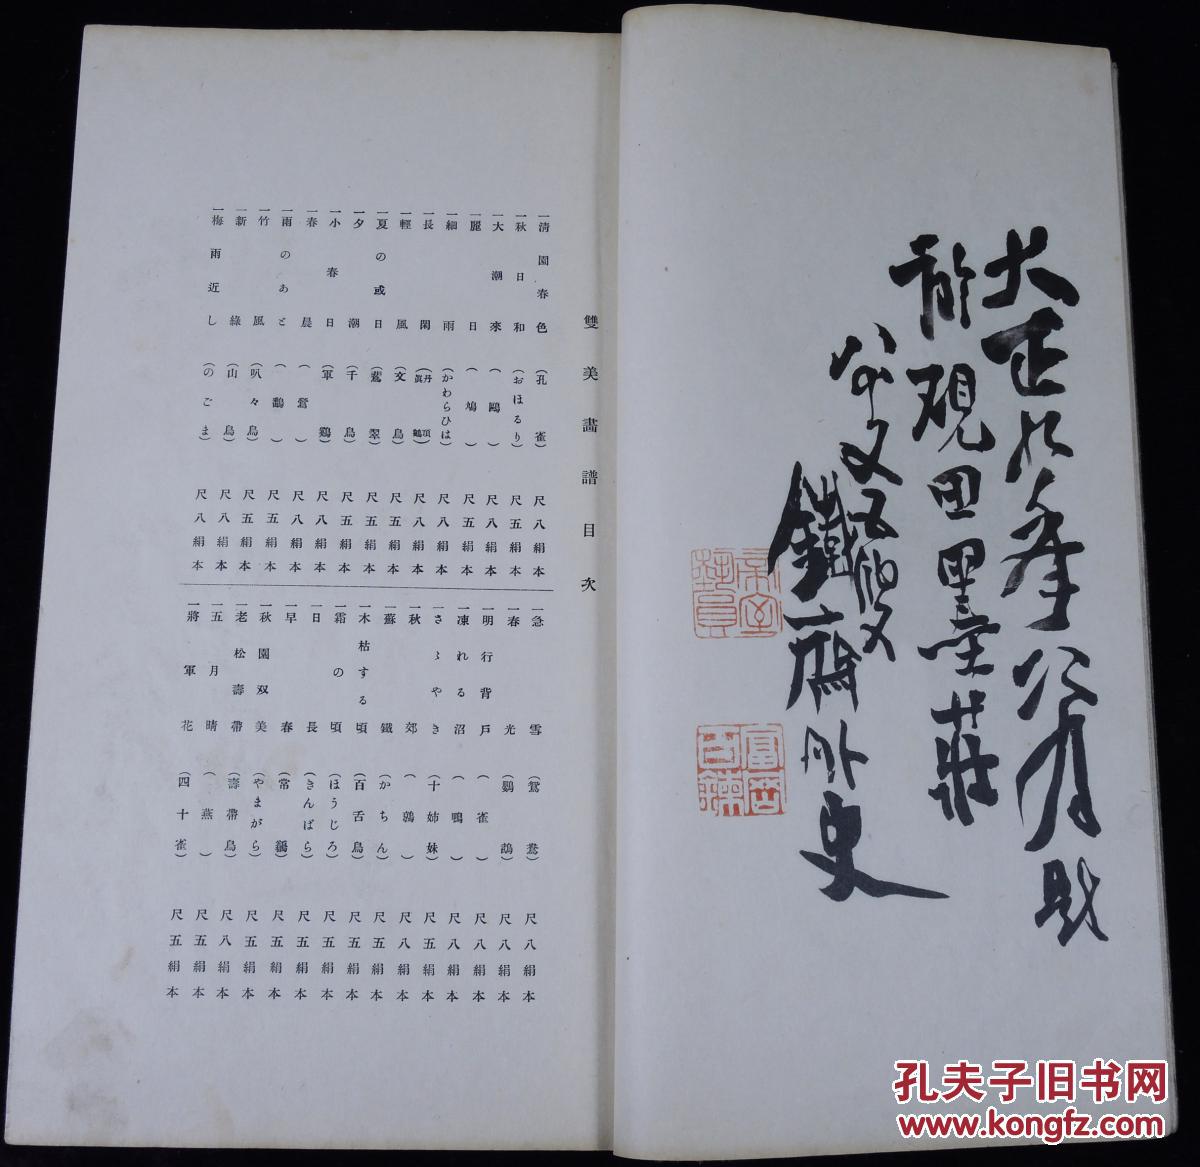 大正九年八月
硯田墨莊
又五
鐵齋外史
帝室
藝員
富岡
百錬
雙美畫譜目次
一清園春色(孔雀)尺八絹本
一秋日和(おほるり)尺五絹本
一大潮來(鷗)尺八絹本
一麗日(鳩)尺五絹本
一細雨(かわらひは)尺八絹本
一長閑(丹頂眞鶴)尺八絹本
一輕風(文鳥)尺五絹本
一夏の或日(翠)尺五絹本
一夕潮(千鳥)尺五絹本
一小春日(軍鷄)尺八絹本
一春晨(鶯)尺八絹本
一雨のあと()尺五絹本
一竹風(叭々鳥)尺五絹本
一新綠(山鳥)尺八絹本
一梅雨近し(のごま)尺八絹本
一急雪(鴛鴦)尺八絹本
一春光(鸚鵡)尺八絹本
一明行背戸(雀)尺八絹本
一凍れる沼(鴨)尺八絹本
一さゝやき(十姉妹)尺五絹本
一秋郊(鶉)尺八絹本
一蘇鐵(かちん)尺五絹本
一木枯する頃(百舌鳥)尺五絹本
一霜の頃(ほうじろ)尺五絹本
一日長(きんばら)尺五絹本
一早春(常鶲)尺五絹本
一秋園双美(やまがら)尺五絹本
一老松壽帶(壽帶鳥)尺八絹本
一五月晴(燕)尺五絹本
一將軍花(四十雀)尺五絹本
孔夫子旧书网
www.kongfz.com